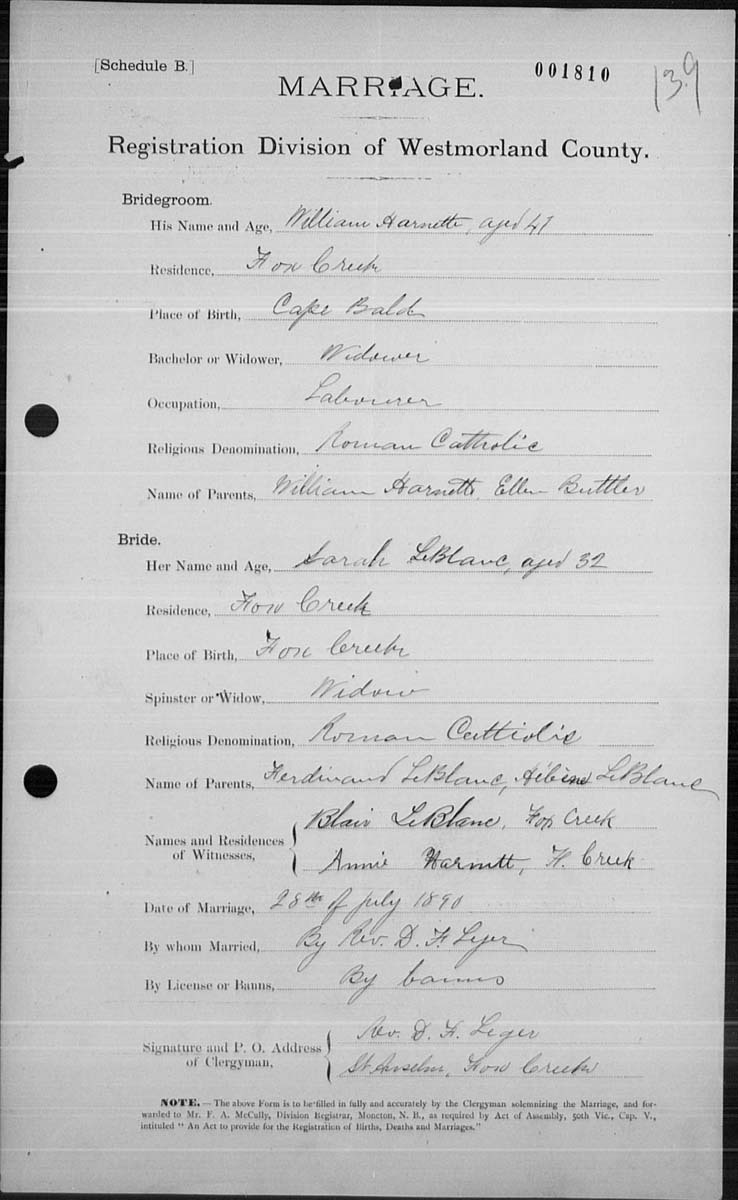 [Schedule B.]
001810
139
MARRIAGE.
Registration Division of Westmorland County.
Bridegroom.
His Name and Age, William Harnett, aged 47
Residence, Fox Creek
Place of Birth, Cape Bald
Bachelor or Widower, Widower
Occupation, Labourer
Religious Denomination, Roman Catholic
Name of Parents, William Harnett, Ellen Buttler
Bride.
Her Name and Age, Sarah LeBlanc, aged 32
Residence, Fox Creek
Place of Birth, Fox Creek
Spinster or Widow, Widow
Religious Denomination, Roman Catholic
Name of Parents, Ferdinand LeBlanc, LeBlanc
Names and Residences of Witnesses, Blair LeBlanc, Fox Creek
Annie Harnett, F. Creek
Date of Marriage, 28th of July 1890
By whom Married, By Rev. D. F. Leger
By License or Banns, By banns
Signature and P. O. Address of Clergyman, Rev. D. F. Leger
St Anselm, Fox Creek
NOTE. — The above Form is to be filled in fully and accurately by the Clergyman solemnizing the Marriage, and for-
warded to Mr. F. A. McCully, Division Registrar, Moncton, N. B., as required by Act of Assembly, 50th Vic., Cap. V.,
intituled " An Act to provide for the Registration of Births, Deaths and Marriages."